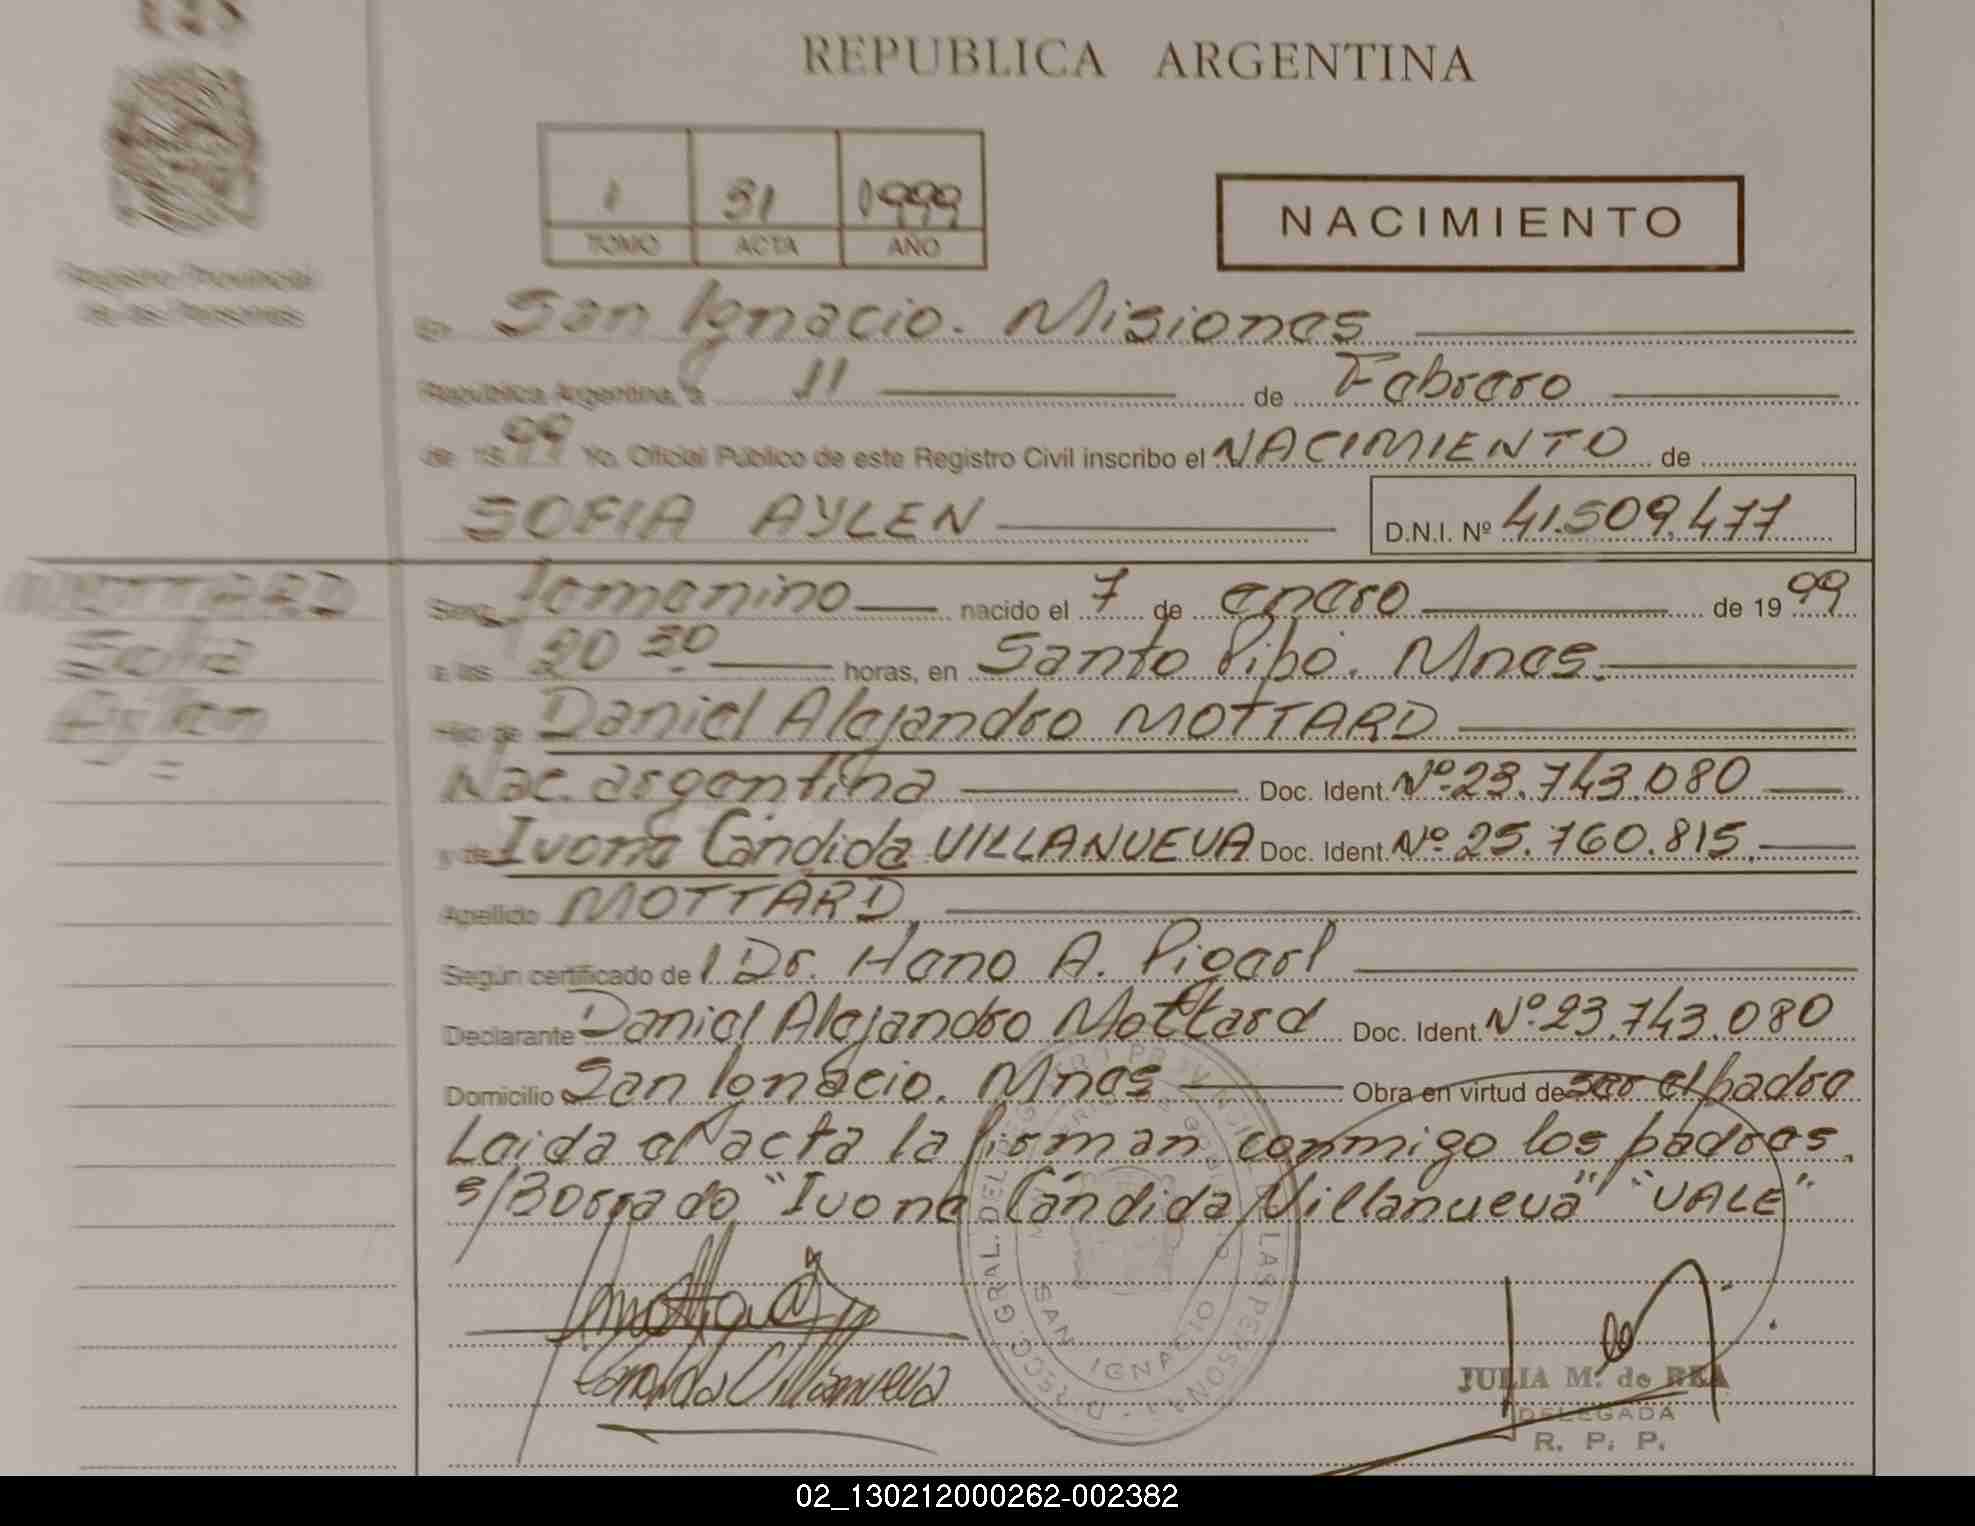 REPUBLICA ARGENTINA
1 31 1999
TOMO ACTA AÑO
NACIMIENTO
Registro Provincial
de las Personas
En San Ignacio. Misiones
República Argentina, a 11 de Febrero
de 1999 Yo, Oficial Público de este Registro Civil inscribo el NACIMIENTO de
SOFIA AYLEN D.N.I. Nº 41.509.477
MOTTARD
Sofia
Aylen
Sexo femenino nacido el 7 de enero de 1999
a las 20 30 horas, en Santo Pipó. Mnes.
Hijo de Daniel Alejandro MOTTARD
Nac. argentina Doc. Ident. Nº 23.743.080
y de Ivone Cándida VILLANUEVA Doc. Ident. Nº 25.760.815
Apellido MOTTARD
Según certificado de Dr. Hano A.
Declarante Daniel Alejandro Mottard Doc. Ident. Nº 23.743.080
Domicilio San Ignacio. Mnes Obra en virtud de ser el padre
Leida el acta la firman conmigo los padres.
s/Borrado "Ivone Cándida Villanueva" "VALE"
SAN IGNACIO
JULIA M. de REA
DELEGADA
R. P. P.
02_130212000262-002382